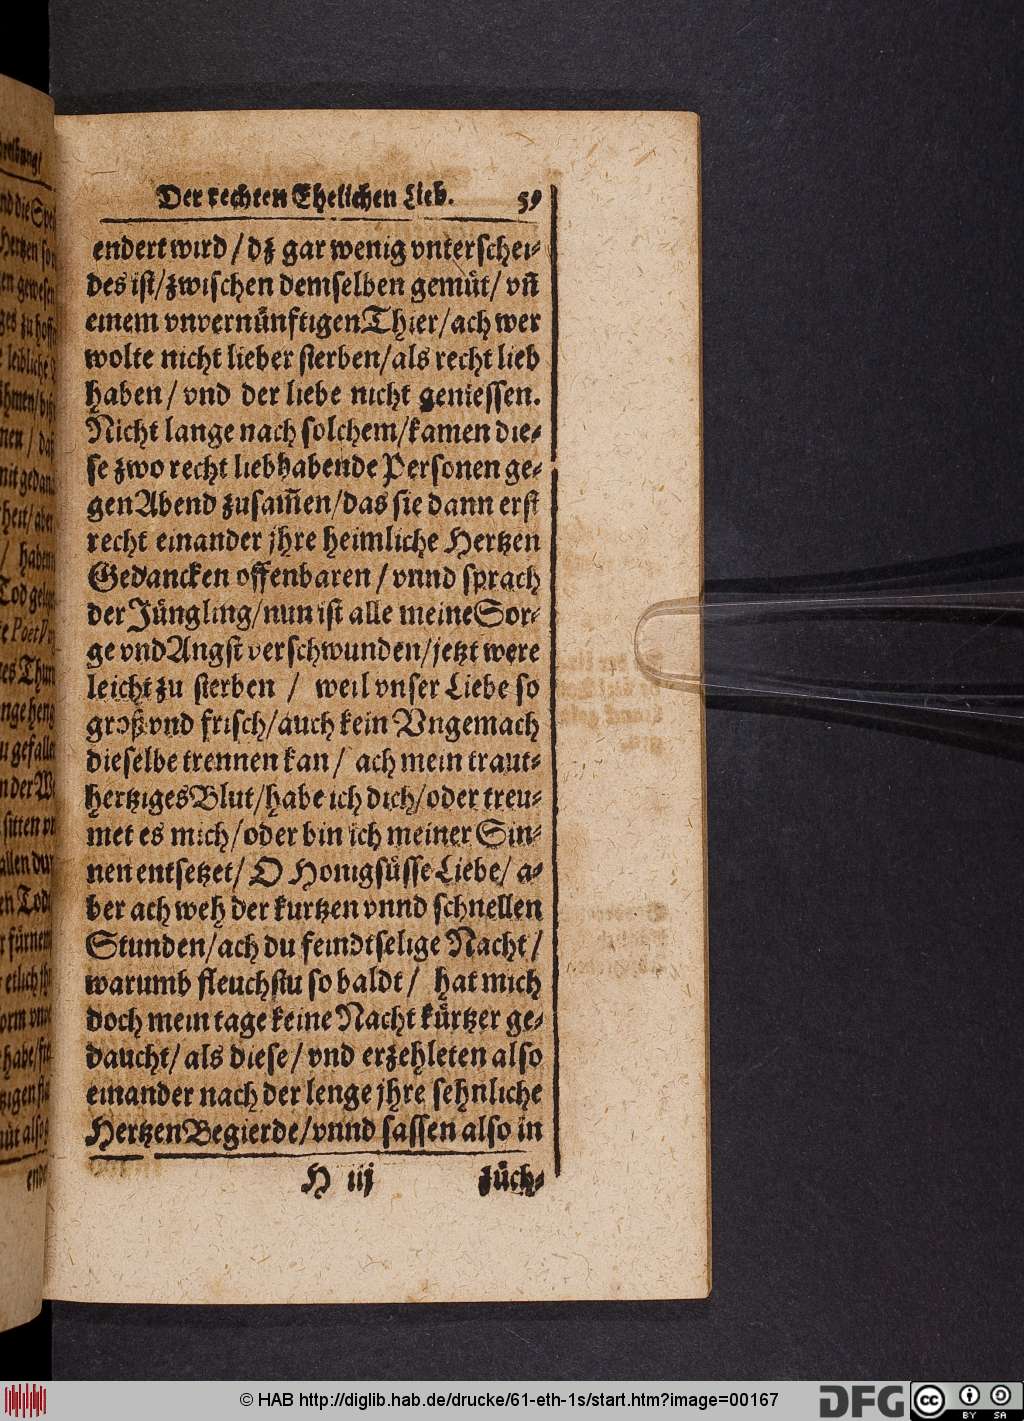 Der rechten Ehelichen Lieb. 59
endert wird / dz gar wenig vnterschei-
des ist/zwischen demselben gemüt/ vñ
einem vnvernünftigen Thier/ach wer
wolte nicht lieber sterben/als recht lieb
haben / vnd der liebe nicht geniessen.
Nicht lange nach solchem/kamen die-
se zwo recht liebhabende Personen ge-
gen Abend zusam̃en/das sie dann erst
recht einander jhre heimliche Hertzen
Gedancken offenbaren / vnnd sprach
der Jüngling/nun ist alle meine Sor-
ge vnd Angst verschwunden/jetzt were
leicht zu sterben / weil vnser Liebe so
groß vnd frisch/auch kein Vngemach
dieselbe trennen kan / ach mein traut-
hertziges Blut/habe ich dich/oder treu-
met es mich/oder bin ich meiner Sin-
nen entsetzet/ O Honigsüsse Liebe/ a-
ber ach weh der kurtzen vnnd schnellen
Stunden/ach du feindtselige Nacht /
warumb fleuchstu so baldt / hat mich
doch mein tage keine Nacht kürtzer ge-
daucht/ als diese / vnd erzehleten also
einander nach der lenge jhre sehnliche
Hertzen Begierde/vnnd sassen also in
H iij züch-
© HAB http://diglib.hab.de/drucke/61-eth-1s/start.htm?image=00167
DFG cc BY SA